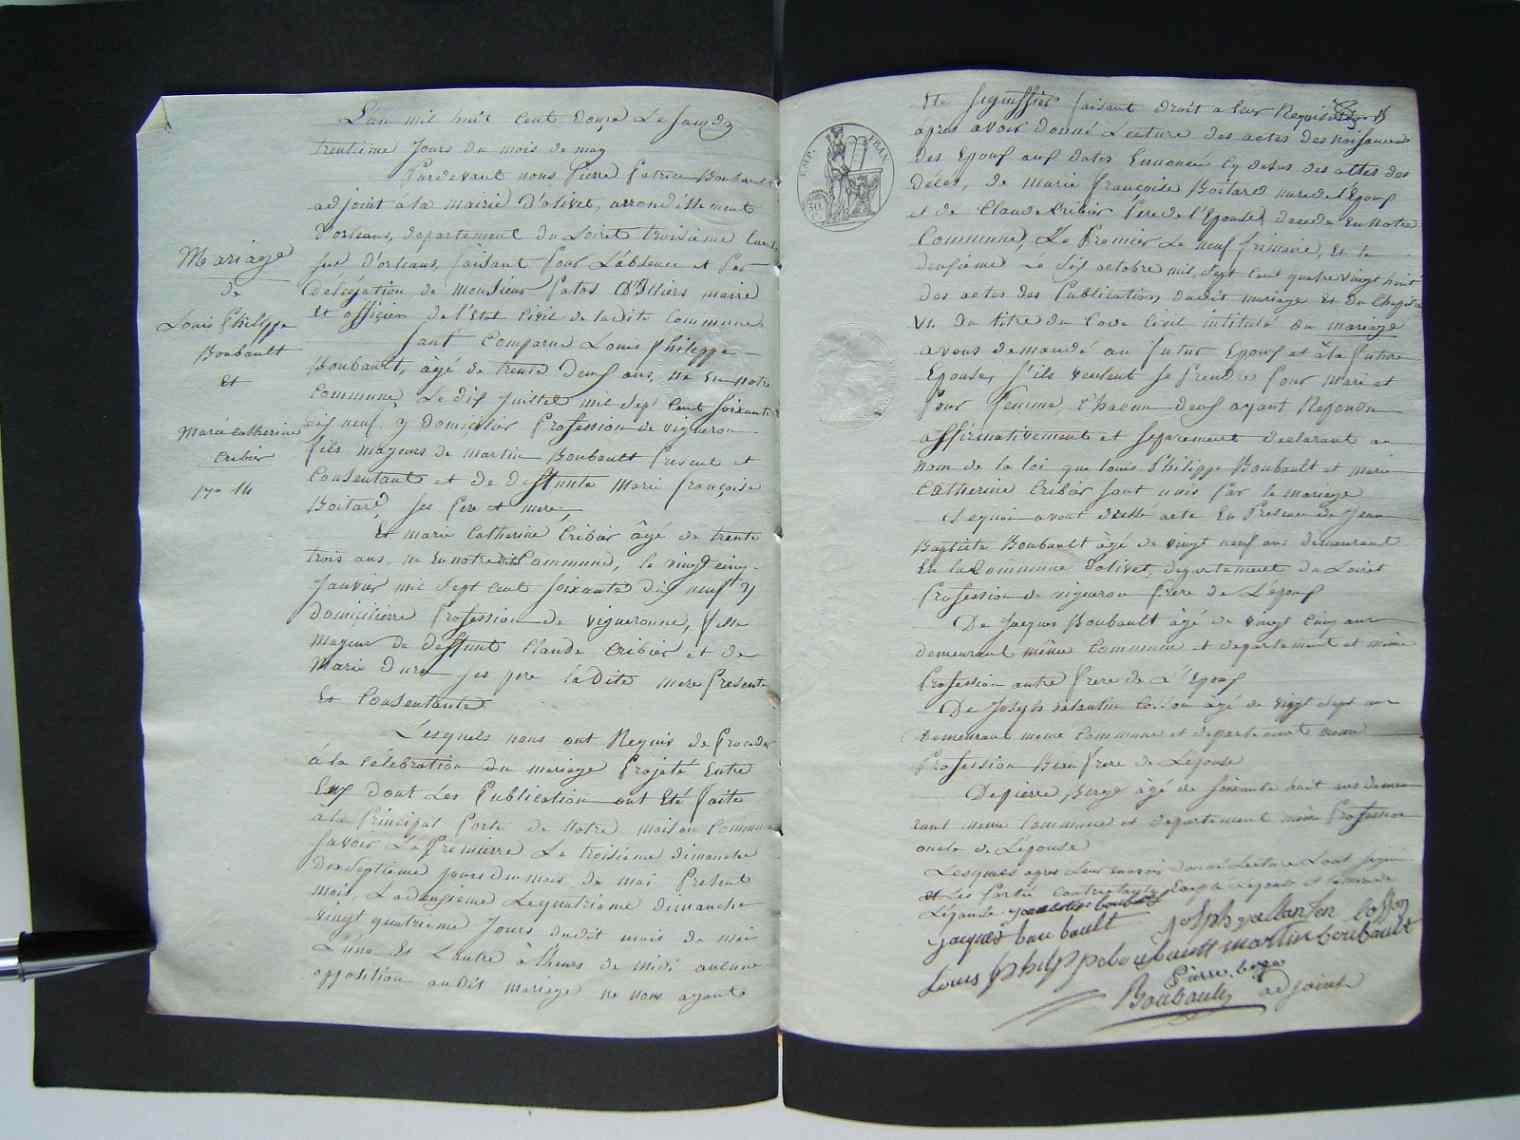 Mariage
de
Louis Philippe
Boubault
Et
Marie Catherine
Cribier
nº 14
L'an mil huit cent douze Le Samdy
trentieme Jours du mois de may
Pardevant nous Pierre Patrice Boubault
adjoint a la mairie D'olivet, arrondissement
D'orleans, departement du Loiret troisieme
D'orleans, faisant pour L'absence et Par
délégation de Monsieur maire
Et officier de l'Etat Civil de la dite Commune
Sont Comparu Louis Philippe
Boubault, âgé de trente Deux ans, né En notre
Commune, Le Dix Juillet mil Sept Cent Soixante
dix neuf, y Domicilié Profession de vigneron
fils majeurs de martin Boubault Present et
Consentant et de deffunte Marie françoise
Boitard, Ses Pere et mere,
Et marie Catherine Cribier âgé de trente
trois ans, né En notre dite Commune, le vingt cinq
Janvier mil Sept Cent Soixante dix neuf y
Domiciliere Profession de vigneronne, fille
majeur de deffunt Claude Cribier et de
Marie Duru ses pere la Dite mere Presente
Et Consentante
Lesquels nous ont Requis de Proceder
à la Célébration du mariage Projeté Entre
Eux dont Les Publication ont Eté faite
à la Principal Porte de Notre maison Commune
Savoir La Premiere Le troisieme dimanche
Dixseptieme jours du mois de mai Present
mois, La deuxieme Le quatrieme dimanche
vingt quatrieme Jours dudit mois de mai
L'une Et L'autre à l'heure de midi aucune
opposition audit mariage ne nous ayante
EMP. FRAN.
Eté Signiffier faisant Droit a leur Requisition
après avoir Donné Lecture des actes des naissances
Des Epoux aux dates Ennoncé Cy dessus des actes des
Déces, de Marie françoise Boitard mere de l'Epoux
et de Claude Cribier Pere de l'Epouse, decedé En notre
Commune, Le Premier Le neuf frimaire, Et le
deuxième Le dix octobre mil Sept Cent quatre vingt huit
Des actes des Publication dudit mariage et du Chapitre
VI. Du titre du Code Civil intitulé du mariage
avons demandé au futur Epoux et à la future
Epouse, S'ils veulent Se Prendre Pour Mari et
Pour femme, Chacun deux ayant Repondu
affirmativement et Séparement declarant au
nom de la loi que louis Philippe Boubault et marie
Catherine Cribier Sont unis Par le mariage
Desquoi avons dressé acte En Presence de Jean
Baptiste Boubault âgé de vingt neuf ans demeurant
En la Commune D'olivet, departement du Loiret
Profession de vigneron frere de L'époux
De Jacques Boubault âgé de vingt Cinq ans
demeurant même Commune et departement et même
Profession autre frere de L'Epoux
De Joseph valentin âgé de vingt Sept ans
Demeurant meme Commune et departement meme
Profession Beau frere de L'épouse
De pierre âgé de Soixante huit ans demeu
rant meme Commune et departement même Profession
oncle de L'épouse
Lesquels apres Leur en avoir Donné Lecture L'ont Signé
et Les Partie contractante Excepté L'epouse et la mere de
L'épouse
jacques boubault joseph valentin
Louis philippe boubault martin boubault
Pierre
Boubault adjoint